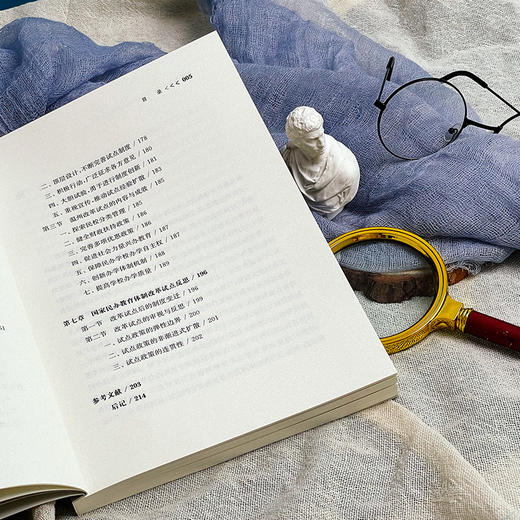 目 录 <<< 005
二、顶层设计，不断完善试点制度 / 178
三、积极行动，广泛征求各方意见 / 180
四、大胆试验，勇于进行制度创新 / 181
五、重视宣传，推动试点经验扩散 / 183
第三节 温州改革试点的内容与成效 / 185
一、探索民校分类管理 / 185
二、健全财政扶持政策 / 186
三、完善多项优惠政策 / 186
四、促进社会力量兴办教育 / 187
五、保障民办学校办学自主权 / 187
六、创新办学体制机制 / 188
七、提高学校办学质量 / 189
第七章 国家民办教育体制改革试点反思 / 196
第一节 改革试点后的制度变迁 / 196
第二节 改革试点的审视与反思 / 199
一、试点政策的弹性边界 / 200
二、试点政策的非渐进式扩散 / 201
三、试点政策的连贯性 / 202
参考文献 / 203
后记 / 214